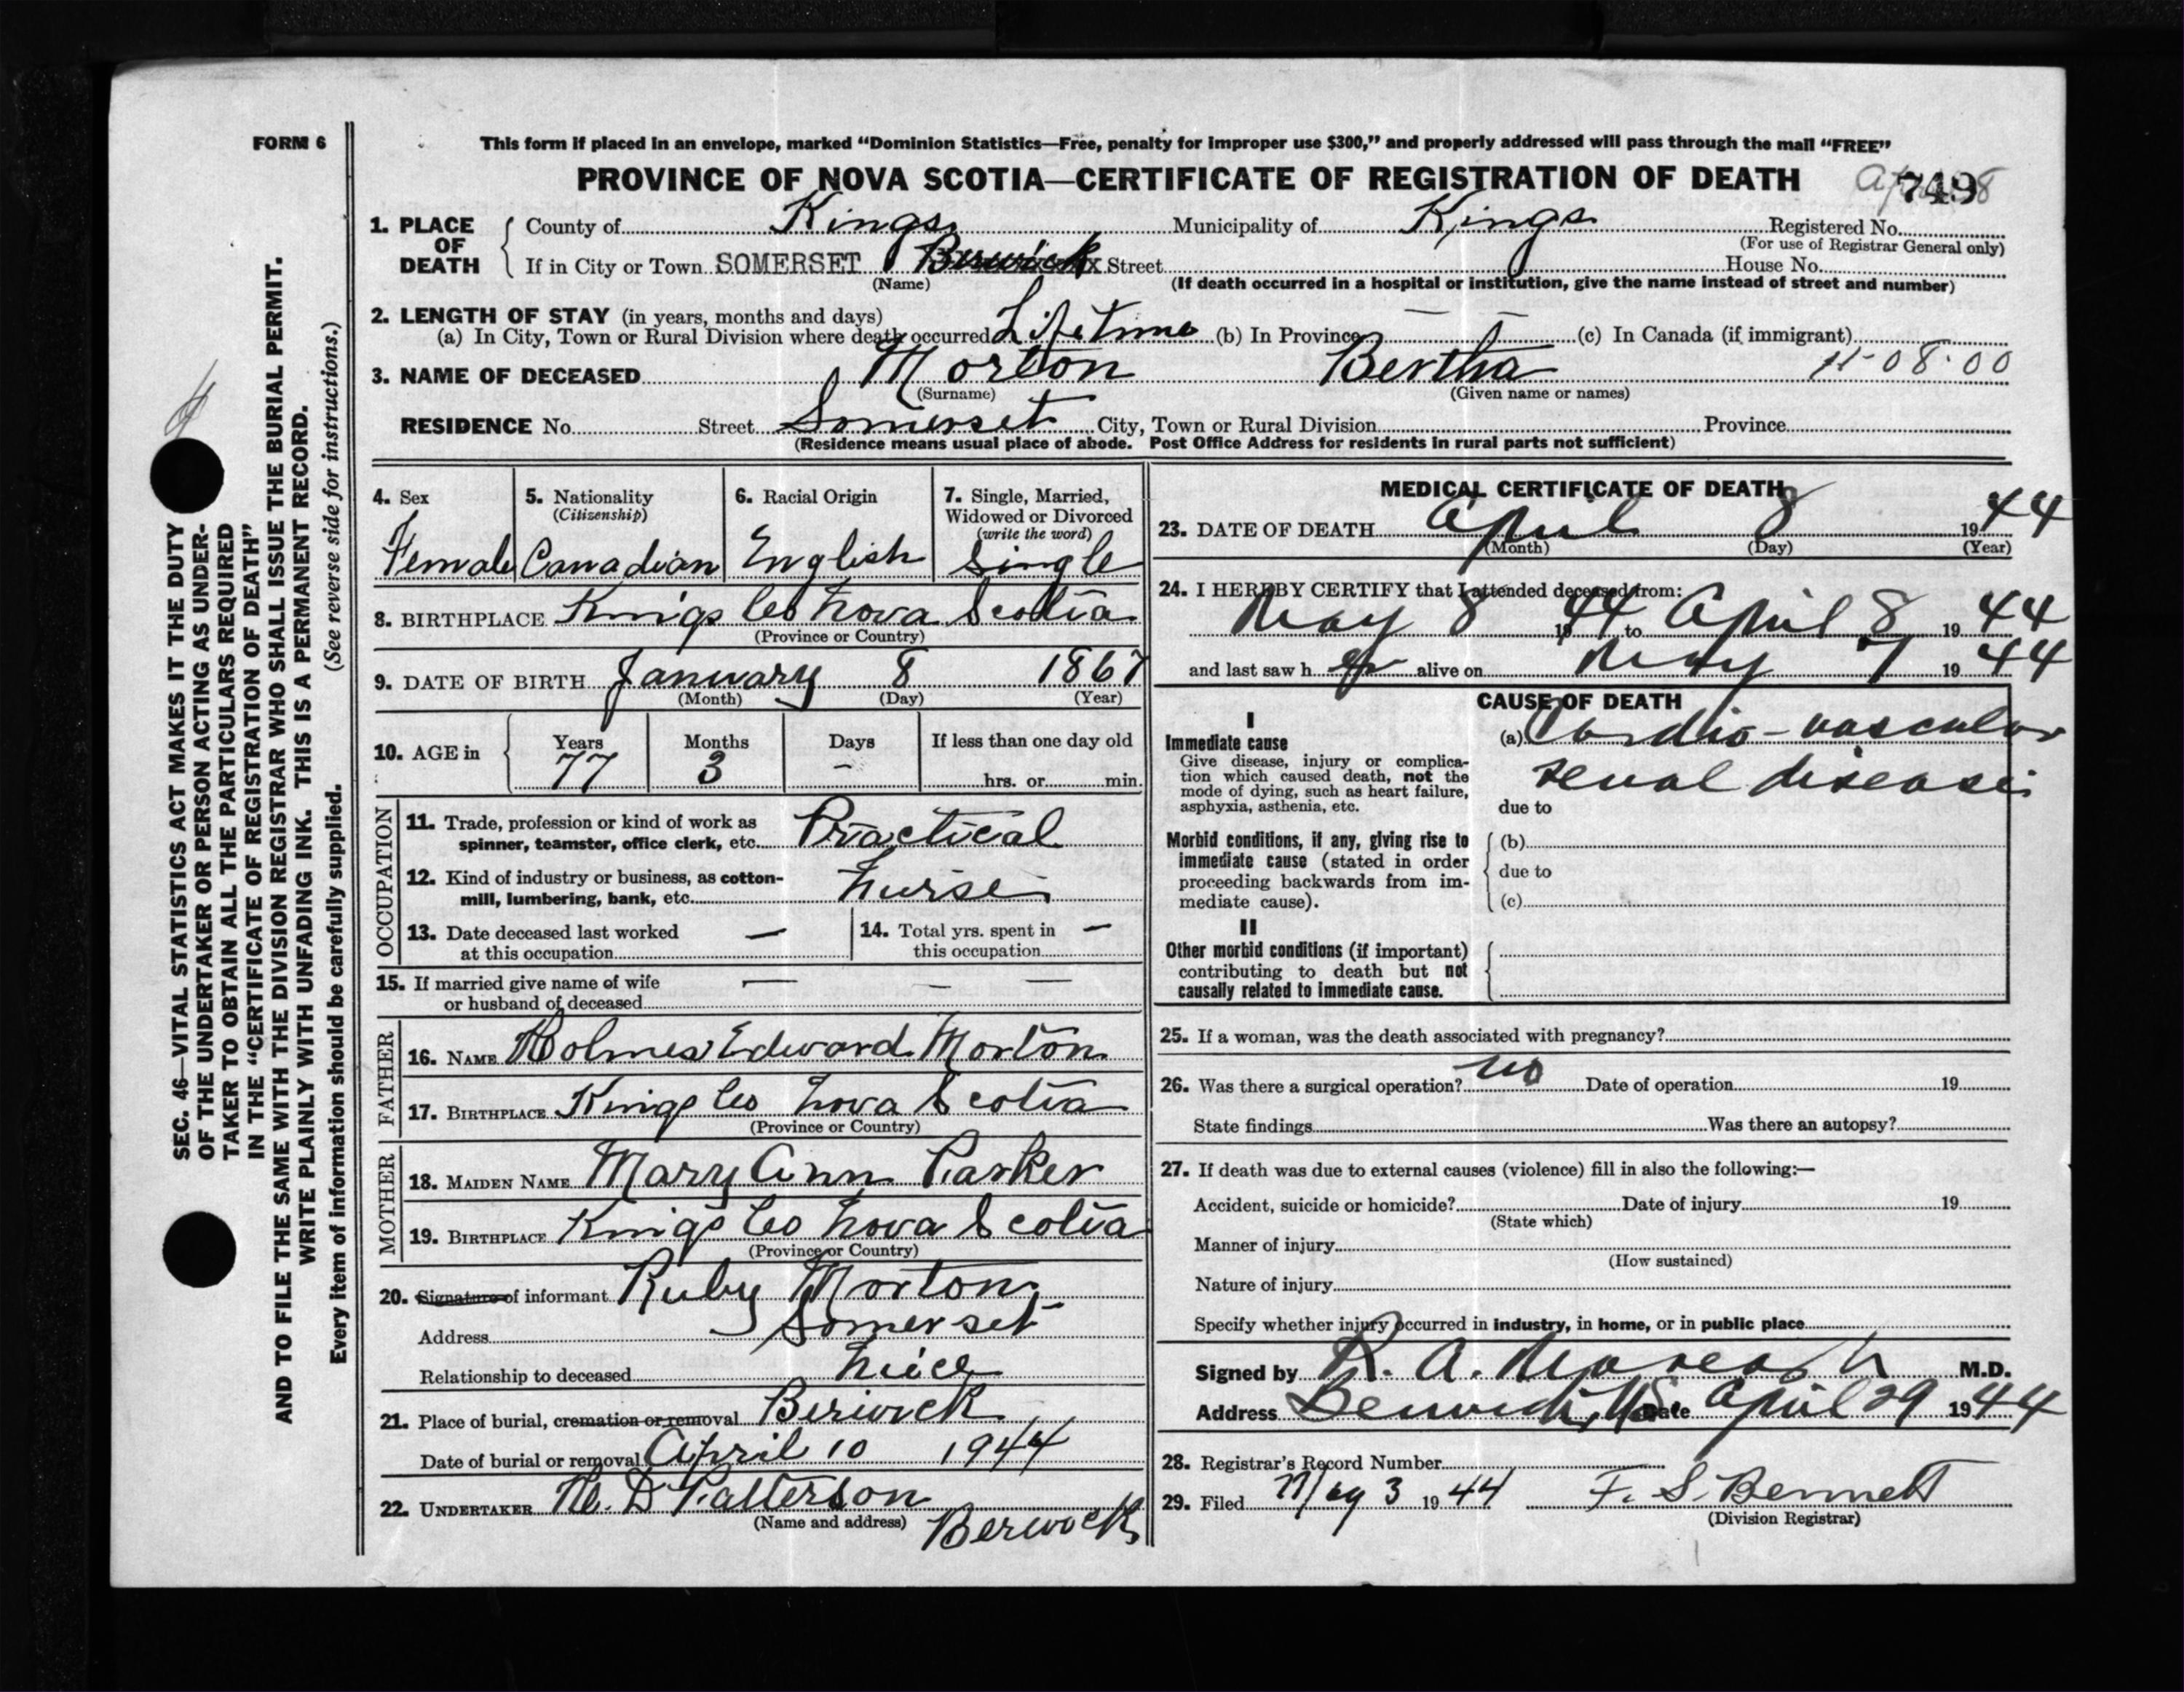 FORM 6
This form if placed in an envelope, marked “Dominion Statistics—Free, penalty for improper use $300,” and properly addressed will pass through the mail “FREE”
PROVINCE OF NOVA SCOTIA—CERTIFICATE OF REGISTRATION OF DEATH
749
1. PLACE OF DEATH
County of Kings Municipality of Kings Registered No.
(For use of Registrar General only)
If in City or Town SOMERSET Berwick Street House No.
(Name) (If death occurred in a hospital or institution, give the name instead of street and number)
2. LENGTH OF STAY (in years, months and days)
(a) In City, Town or Rural Division where death occurred Lifetime (b) In Province — — (c) In Canada (if immigrant)
3. NAME OF DECEASED Morton Bertha 11-08-00
(Surname) (Given name or names)
RESIDENCE No. Street Somerset City, Town or Rural Division Province
(Residence means usual place of abode. Post Office Address for residents in rural parts not sufficient)
4. Sex
Female
5. Nationality
(Citizenship)
Canadian
6. Racial Origin
English
7. Single, Married,
Widowed or Divorced
(write the word)
Single
8. BIRTHPLACE Kings Co Nova Scotia
(Province or Country)
9. DATE OF BIRTH January 8 1867
(Month) (Day) (Year)
10. AGE in
Years Months Days If less than one day old
77 3 - hrs. or min.
OCCUPATION
11. Trade, profession or kind of work as
spinner, teamster, office clerk, etc. Practical
12. Kind of industry or business, as cotton-
mill, lumbering, bank, etc. Nurse
13. Date deceased last worked
at this occupation —
14. Total yrs. spent in
this occupation —
15. If married give name of wife
or husband of deceased — — —
FATHER
16. NAME Holmes Edward Morton
17. BIRTHPLACE Kings Co Nova Scotia
(Province or Country)
MOTHER
18. MAIDEN NAME Mary Ann Parker
19. BIRTHPLACE Kings Co Nova Scotia
(Province or Country)
20. Signature of informant Ruby Morton
Address Somerset
Relationship to deceased Niece
21. Place of burial, cremation or removal Berwick
Date of burial or removal April 10 1944
22. UNDERTAKER D Patterson
(Name and address) Berwick
MEDICAL CERTIFICATE OF DEATH
23. DATE OF DEATH April 8 1944
(Month) (Day) (Year)
24. I HEREBY CERTIFY that I attended deceased from:
May 8 1944 to April 8 1944
and last saw her alive on May 7 1944
CAUSE OF DEATH
I
Immediate cause
Give disease, injury or complica-
tion which caused death, not the
mode of dying, such as heart failure,
asphyxia, asthenia, etc.
(a) Cardio-vascular
renal disease
due to
Morbid conditions, if any, giving rise to
immediate cause (stated in order
proceeding backwards from im-
mediate cause).
(b)
due to
(c)
II
Other morbid conditions (if important)
contributing to death but not
causally related to immediate cause.
25. If a woman, was the death associated with pregnancy?
26. Was there a surgical operation? no Date of operation 19
State findings Was there an autopsy?
27. If death was due to external causes (violence) fill in also the following:—
Accident, suicide or homicide? Date of injury 19
(State which)
Manner of injury
(How sustained)
Nature of injury
Specify whether injury occurred in industry, in home, or in public place
Signed by R. A. M.D.
Address Berwick, NS Date April 29 1944
28. Registrar's Record Number
29. Filed May 3 1944 F. S. Bennett
(Division Registrar)
SEC. 46—VITAL STATISTICS ACT MAKES IT THE DUTY
OF THE UNDERTAKER OR PERSON ACTING AS UNDER-
TAKER TO OBTAIN ALL THE PARTICULARS REQUIRED
IN THE “CERTIFICATE OF REGISTRATION OF DEATH”
AND TO FILE THE SAME WITH THE DIVISION REGISTRAR WHO SHALL ISSUE THE BURIAL PERMIT.
WRITE PLAINLY WITH UNFADING INK. THIS IS A PERMANENT RECORD.
Every item of information should be carefully supplied. (See reverse side for instructions.)